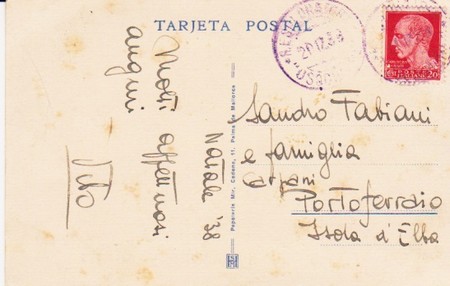 TARJETA POSTAL
Molti affettuosi
auguri
Vito
Natale '38
Papelería Mir, Cadena, 11, Palma de Mallorca
Sandro Fabiani
e famiglia
Portoferraio
Isola d'Elba